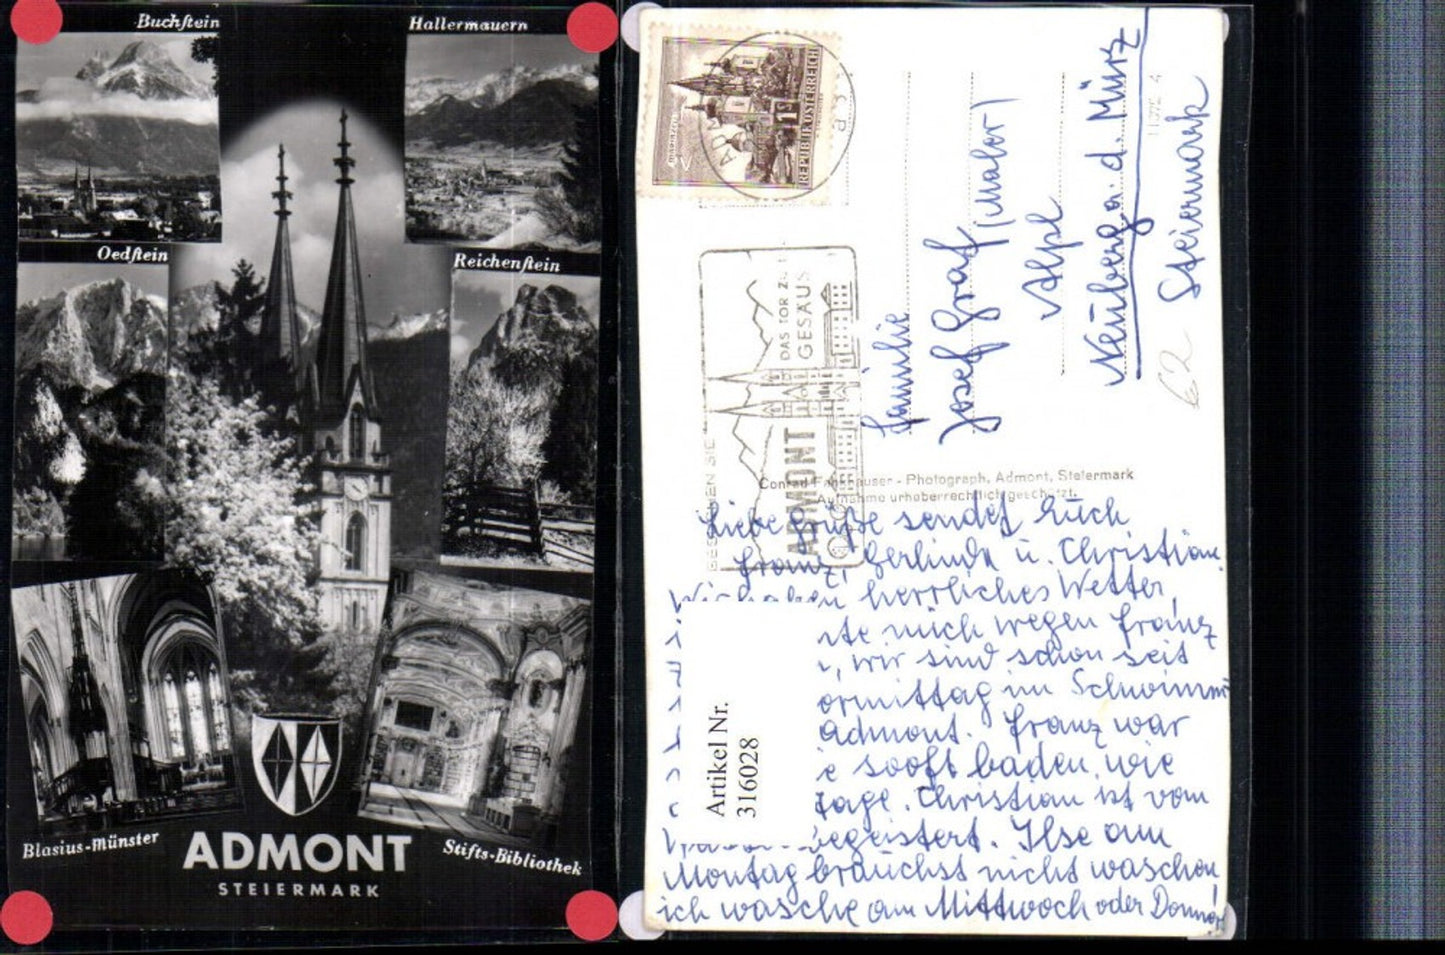 Buchstein
Hallermauern
Oedstein
Reichenstein
Blasius-Münster
Stifts-Bibliothek
ADMONT
STEIERMARK
REPUBLIK ÖSTERREICH
1
DAS TOR ZUM
GESÄUSE
ADMONT
Familie
Josef Graf (Maler)
Alpl
Neuberg a. d. Mürz
Steiermark
62
Photograph, Admont, Steiermark
Aufnahme urheberrechtlich geschützt.
Liebe Grüße sendet Euch
Franz, Gerlinde u. Christian
Wir haben herrliches Wetter,
mich wegen Franz
wir sind schon seit
im Schwimm
Admont. Franz war
sooft baden, wie
tage. Christian ist vom
begeistert. Ilse am
Montag brauchst nicht waschen
ich wasche am Mittwoch oder
Artikel Nr.
316028